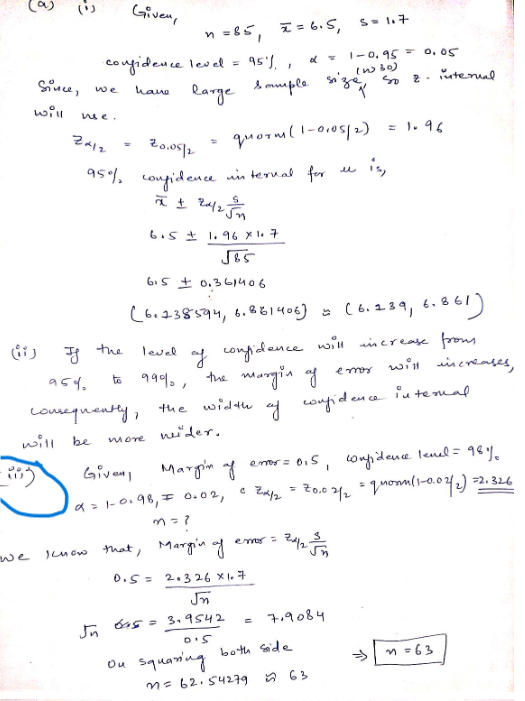 (a) (i) Given,
n = 85, x̄ = 6.5, s = 1.7
confidence level = 95%, α = 1-0.95 = 0.05
Since, we have large sample size (n>30), so z-interval
will use.
Zα/2 = Z0.05/2 = qnorm(1-0.05/2) = 1.96
95% confidence interval for u is,
x̄ ± Zα/2 s/√n
6.5 ± 1.96 × 1.7/√85
6.5 ± 0.361406
(6.138594, 6.861406) ≈ (6.139, 6.861)
(ii) If the level of confidence will increase from
95% to 99%, the margin of error will increases,
consequently, the width of confidence interval
will be more wider.
iii) Given, Margin of error = 0.5, confidence level = 98%
α = 1-0.98, = 0.02, Zα/2 = Z0.02/2 = qnorm(1-0.02/2) = 2.326
n = ?
we know that, Margin of error = Zα/2 s/√n
0.5 = 2.326 × 1.7/√n
√n = 3.9542/0.5 = 7.9084
On squaring both side
n = 62.54279 ≈ 63 ⇒ n = 63